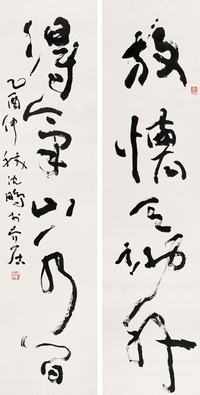 放懷天地外
得氣山水間
乙酉仲秋沈鵬於介居